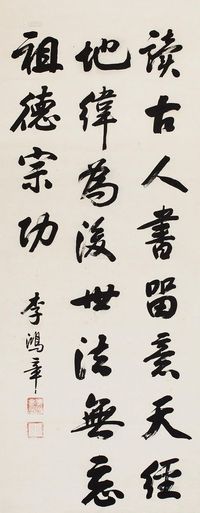 讀古人書留意天經
地緯為後世法無忘
祖德宗功
李鴻章